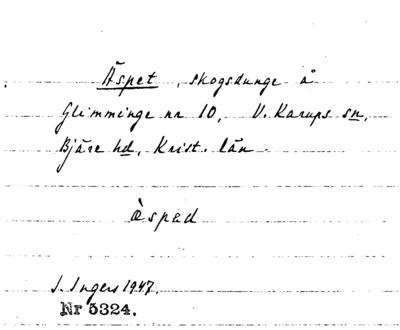 Äspet, skogsdunge å
Glimminge nr 10, V. Karups sn,
Bjäre hd, Krist. län.
èspad
I. Ingers 1947.
Nr 5324.